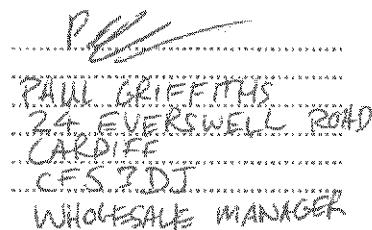 PAUL GRIFFITHS
24 EVERSWELL ROAD
CARDIFF
CF5 3DJ
WHOLESALE MANAGER